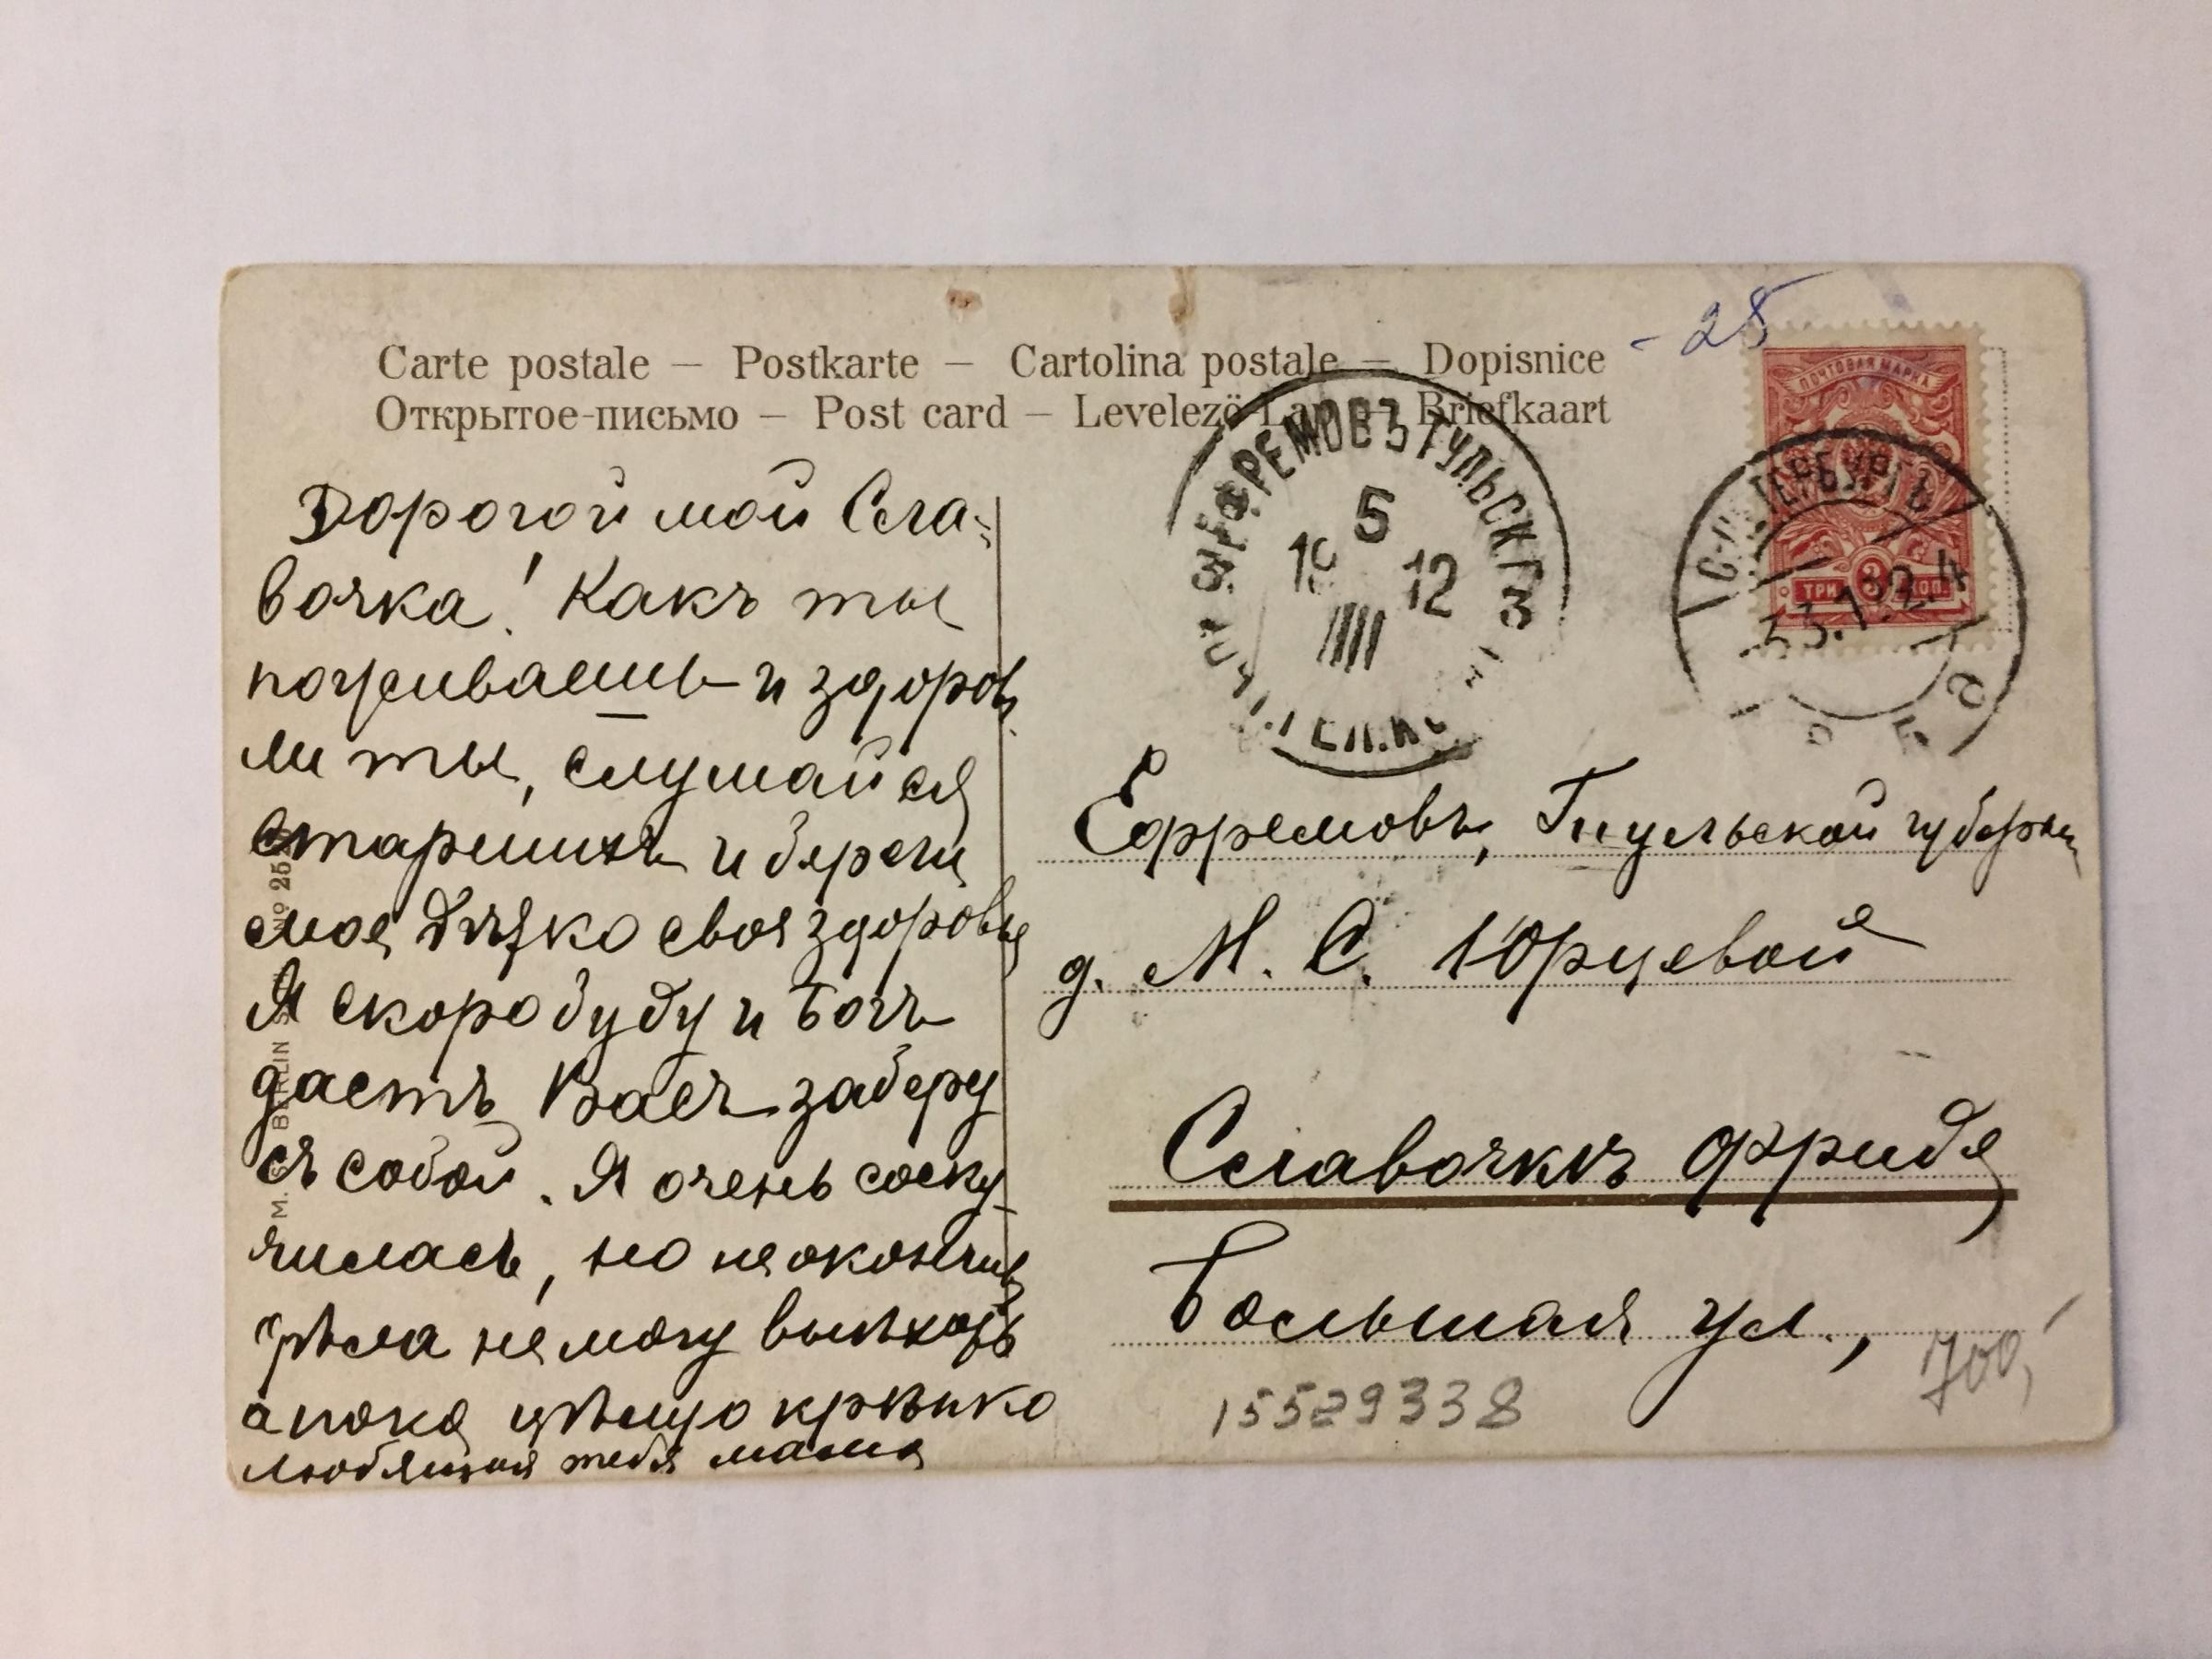 Carte postale – Postkarte – Cartolina postale – Dopisnice
Открытое-письмо – Post card – Levelező-Lap – Briefkaart
- 25
ПОЧТОВАЯ МАРКА
ТРИ 3 КОП.
С-ПЕТЕРБУРГЪ
ЕФРЕМОВЪ ТУЛЬСК. Г.
5
12
Дорогой мой Сла-
вочка! Какъ ты
поживаешь и здоровъ
ли ты, слушайся
старшихъ и береги
мое, свое здоровье
Я скоро буду и Богъ
дастъ Васъ заберу
съ собой. Я очень соску
чилась, но не окончивъ
дѣла не могу выѣхать
а пока цѣлую крѣпко
любящая тебя мама
Ефремовъ, Тульской губерніи
д. М. С. Юрцевой
Славочкѣ Фриде
Большая ул.,
15529338
700,-
M. S. BERLIN
No 25